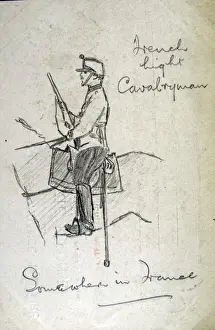 French
Light
Cavalryman
Somewhere in France